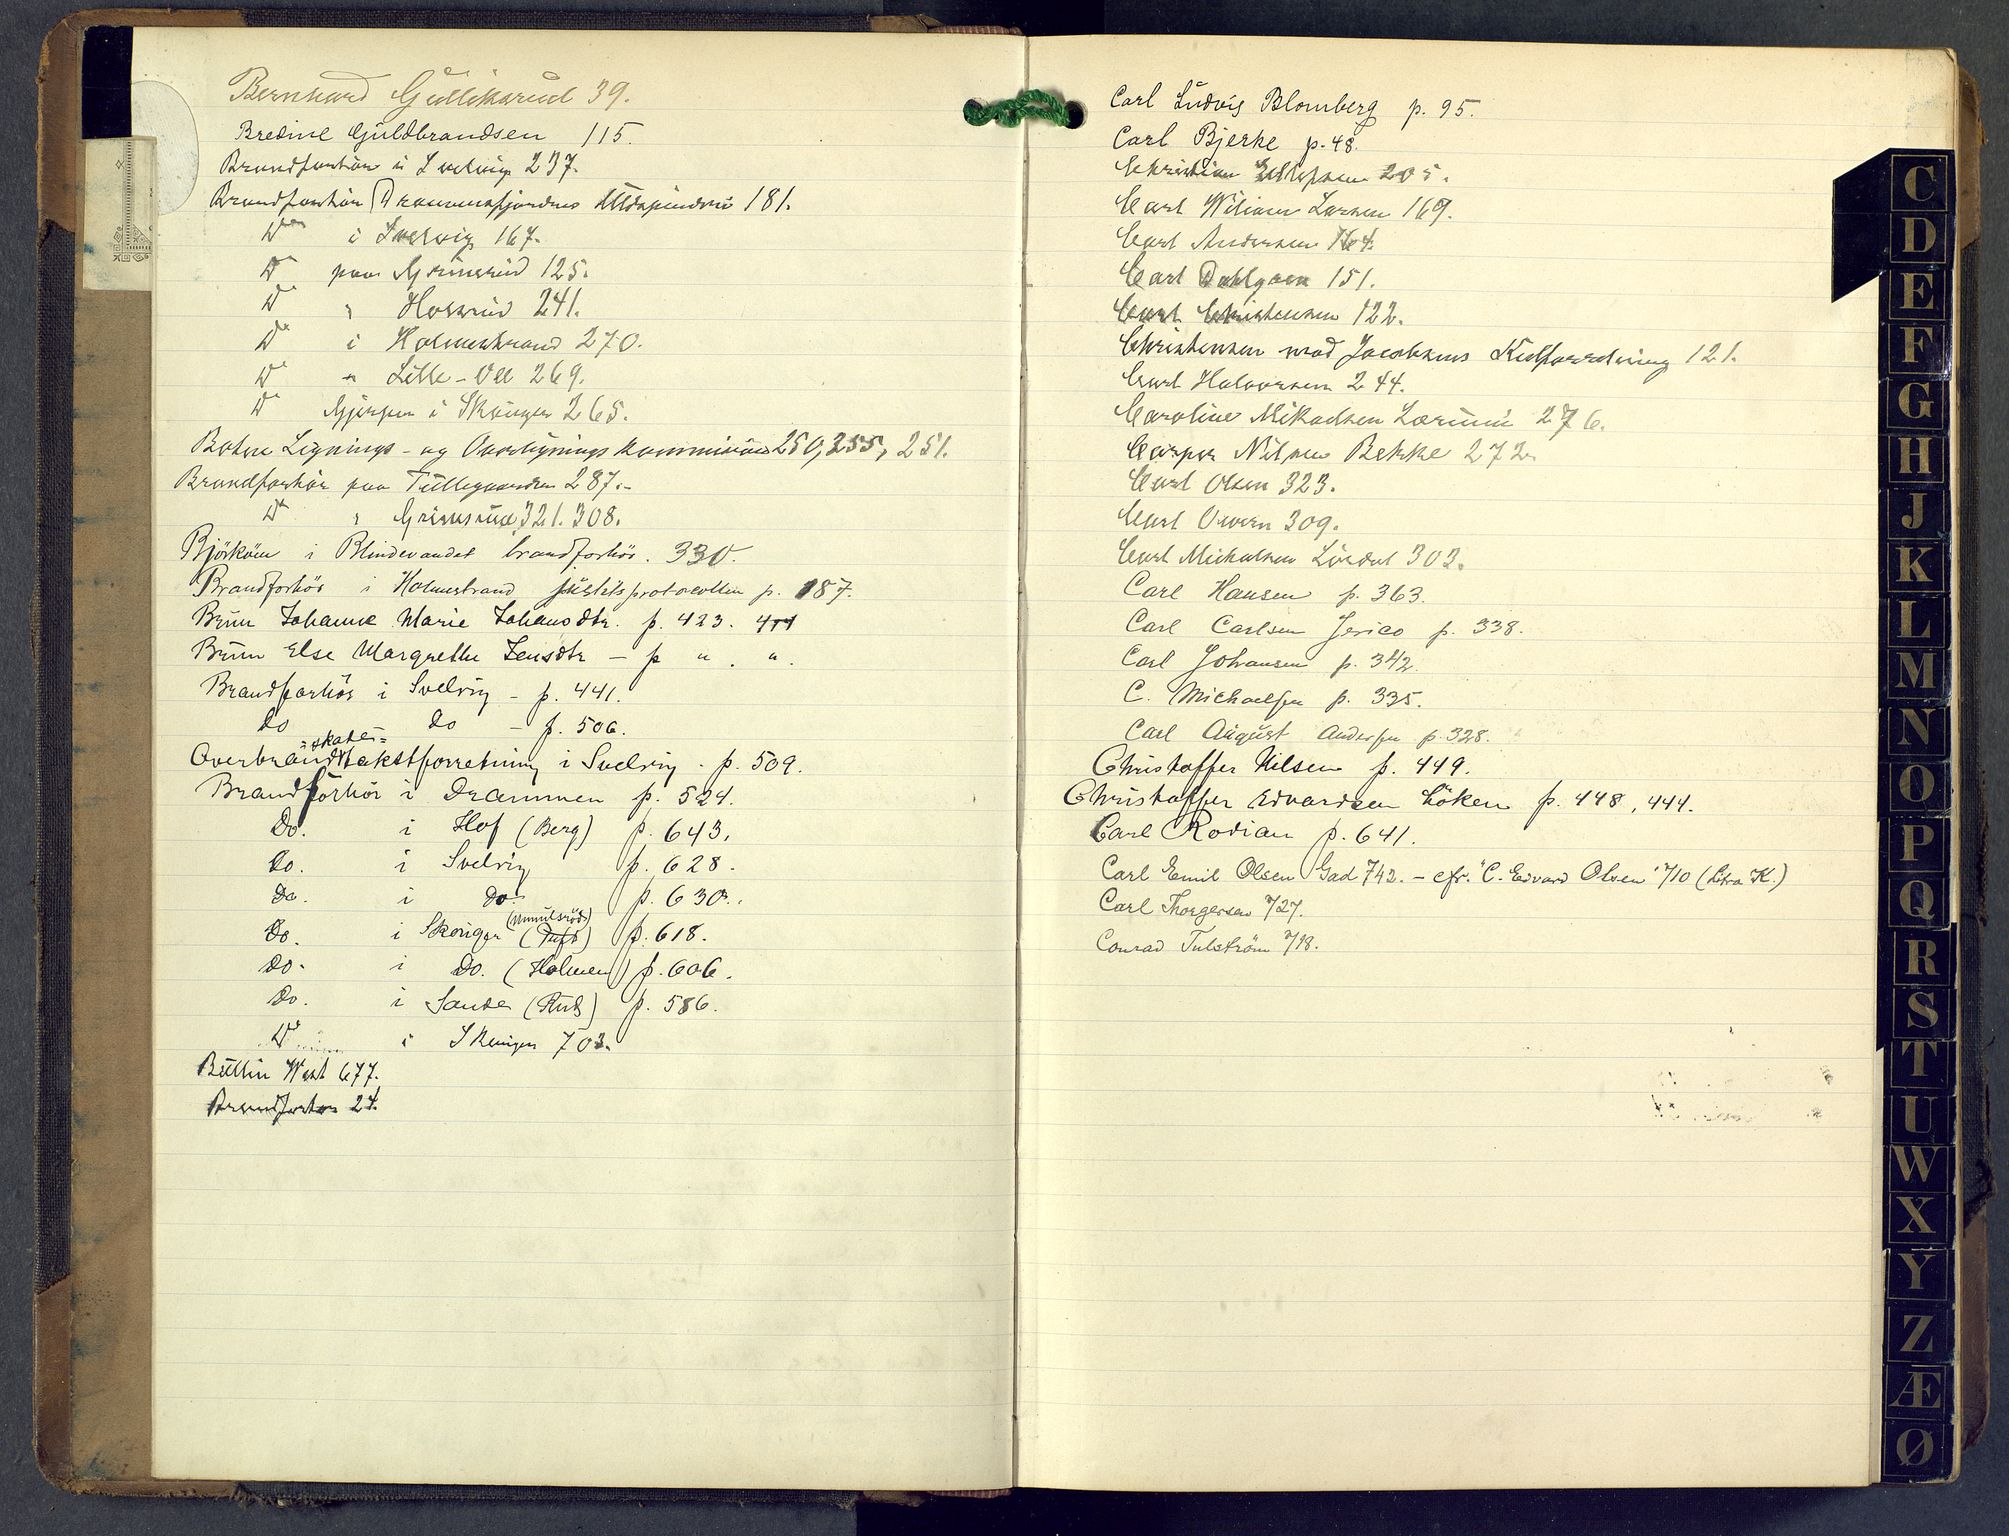 Bernhard Gulliksrud 39.
Bredine Guldbrandsen 115.
Brandforhör i Svelvig 237.
Brandforhör Drammensfjordens 181.
Do i Svelvig 167.
Do paa Grimsrud 125.
Do " 241.
Do i Holmestrand 270.
Do " Lille-Oll 269.
Do i Skouger 265.
Botne Lignings- og Overligningskommission 250, 255, 251.
Brandforhör paa Tollegaarden 287.-
Do " Grimsrud 321. 308.
Björköen i Blindevandet brandforhör. 330.
Brandforhör i Holmestrand justitsprotocollen p. 187.
Brun Johanne Marie Johansdtr. p. 423. 411
Brun Else Margrethe Jensdtr - p " . ".
Brandforhör i Svelvig - p. 441.
Do Do - p. 506.
=skade=
Overbrandtakstforretning i Svelvig - p. 509.
Brandforhör i Drammen p. 524.
Do. i Hof (Berg) p. 643.
Do. i Svelvig p. 628.
Do. i Do. p. 630.
(Unnulsröd)
Do. i Skouger (Tuft) p. 618.
Do. i Do. (Holmen) p. 606.
Do. i Sande (Rud) p. 586.
Do i Skouger 703.
Buttin West 677.
Brandforhör 24.
Carl Ludvig Blomberg p. 95.
Carl Bjerke p. 48.
Christian Ellefsen 205.
Carl Wiliam Larsen 169.
Carl Andersen 164.
Carl Dahlgren 151.
Carl Christensen 122.
Christensen mod Jacobsens 121.
Carl Halvorsen 244.
Caroline Mikalsen 276.
Casper Nilsen Bekke 272.
Carl Olsen 323.
Carl 309.
Carl Michalsen 303.
Carl Hansen p. 363.
Carl Carlsen Jerico p. 338.
Carl Johansen p. 342.
C. Michaelsen p. 335.
Carl August Andersen p. 328.
Christoffer Nilsen p. 449.
Christoffer Edvardsen Löken p. 448, 444.
Carl Rodian p. 641.
Carl Emil Olsen Gad 742. - cfr. "C. Edvard Olsen" 710 (Litra K.)
Carl Thorgersen 727.
Conrad Tulström 718.
C
D
E
F
G
H
J
K
L
M
N
O
P
Q
R
S
T
U
W
X
Y
Z
Æ
Ø